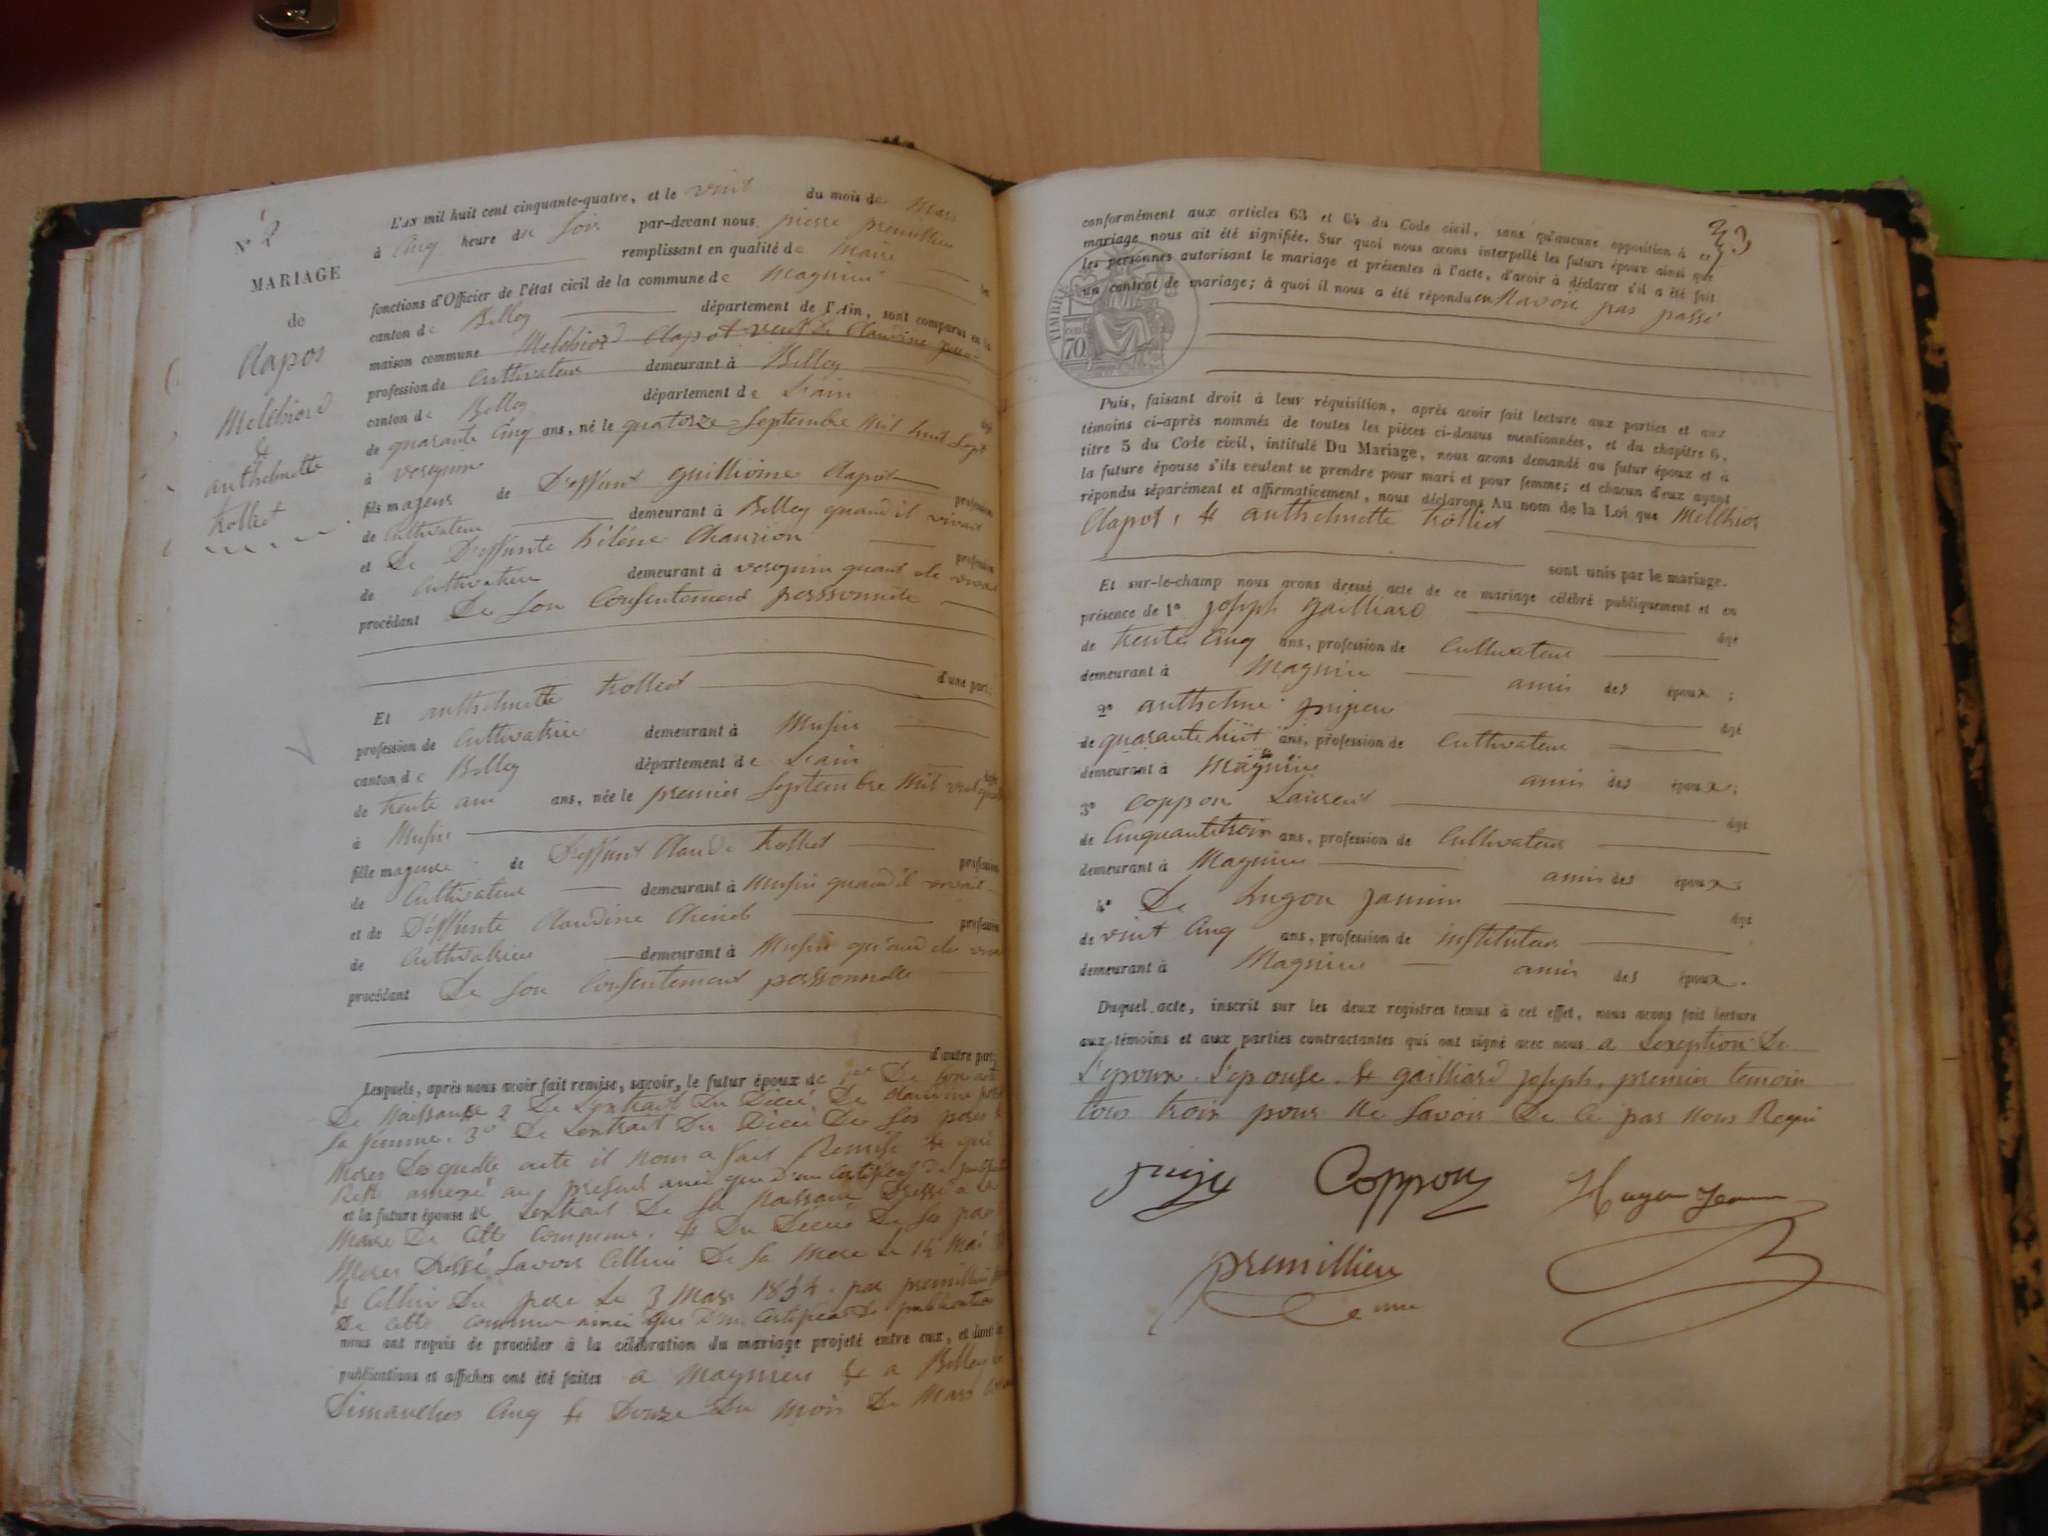 N° 2
MARIAGE
de
Clapot
Melchiord
&
anthelmette
trolliet
L'AN mil huit cent cinquante-quatre, et le vint du mois de Mars
à Cinq heure du Soir par-devant nous pierre premillieu
remplissant en qualité de Maire les
fonctions d'Officier de l'état civil de la commune de Magnieu
canton de Belley département de l'Ain, sont comparus en la
maison commune Melchiord Clapot veuf de Claudine
profession de Cultivateur demeurant à Belley
canton de Belley département de L'ain âgé
de quarante Cinq ans, né le quatorze Septembre Mil huit Sept
à
fils majeur de Deffunt guilliome Clapot profession
de Cultivateur demeurant à Belley quand il vivait
et De Deffunte hélène profession
de Cultivatrice demeurant à quant ele vivai
procédant De Son Consentement perssonnelle
d'une part;
Et anthelmette trolliet
profession de Cultivatrice demeurant à Musin
canton de Belley département de L'ain âgée
de trente ans ans, née le premier Septembre Mil vint quatre
à Musin
fille majeure de Deffunt Claude trolliet profession
de Cultivateur demeurant à Musin quand il vivait
et de Deffunte Claudine profession
de Cultivatrice demeurant à Musin quand ele viva
procédant De Son Consentement perssonnelle
d'autre part;
Lesquels, après nous avoir fait remise, savoir, le futur époux de De Son acte
De Naissance 2 De Lextrait Du Décié De
Sa femme. 3° De Lextrait Du Décié De Ses peres &
Meres Lesquelle acte il nous a fait Remise & qui
Rest annexé au présent ainci que D'un Certificat De publicati
et la future épouse de Lextrait De Sa Naissance Dressé a la
Maire De Cette Commune. & Du Décié De Ses per
Meres Dréssé Savoir Cellui De Sa Mere le 14 Mai
& Cellui Du pere Le 3 Mars 1854. par premillieu
De Cette Commune ainci que D'un Certifica De publication
nous ont requis de procéder à la célébration du mariage projeté entre eux, et dont les
publications et affiches ont été faites a Magnieu & a Belley les
Dimanches Cinq & Douze Du Mois De Mars
33
conformément aux articles 63 et 64 du Code civil, sans qu'aucune opposition à ce
mariage nous ait été signifiée. Sur quoi nous avons interpellé les futurs époux ainsi que
les personnes autorisant le mariage et présentes à l'acte, d'avoir à déclarer s'il a été fait
un contrat de mariage; à quoi il nous a été répondu en Navoir pas passé
TIMBRE
70
Puis, faisant droit à leur réquisition, après avoir fait lecture aux parties et aux
témoins ci-après nommés de toutes les pièces ci-dessus mentionnées, et du chapitre 6,
titre 5 du Code civil, intitulé Du Mariage, nous avons demandé au futur époux et à
la future épouse s'ils veulent se prendre pour mari et pour femme; et chacun d'eux ayant
répondu séparément et affirmativement, nous déclarons Au nom de la Loi que Melchior
Clapot, & anthelmette trolliet
sont unis par le mariage.
Et sur-le-champ nous avons dressé acte de ce mariage célébré publiquement et en
présence de 1° Joseph gailliard âgé
de trente Cinq ans, profession de Cultivateur
demeurant à Magnieu amis des époux;
2° anthelme âgé
de quarante huit ans, profession de Cultivateur
demeurant à Magnieu amis des époux;
3° Coppon Laurent âgé
de Cinquante trois ans, profession de Cultivateur
demeurant à Magnieu amis des époux
4° De hugon Jannin âgé
de vint Cinq ans, profession de instituteur
demeurant à Magnieu amis des époux.
Duquel acte, inscrit sur les deux registres tenus à cet effet, nous avons fait lecture
aux témoins et aux parties contractantes qui ont signé avec nous a Lexeption De
L'epoux. L'epouse. & gailliard Joseph. premier temoin
tous trois pour ne Savoir De Ce par Nous Requi
Coppon
premillieu